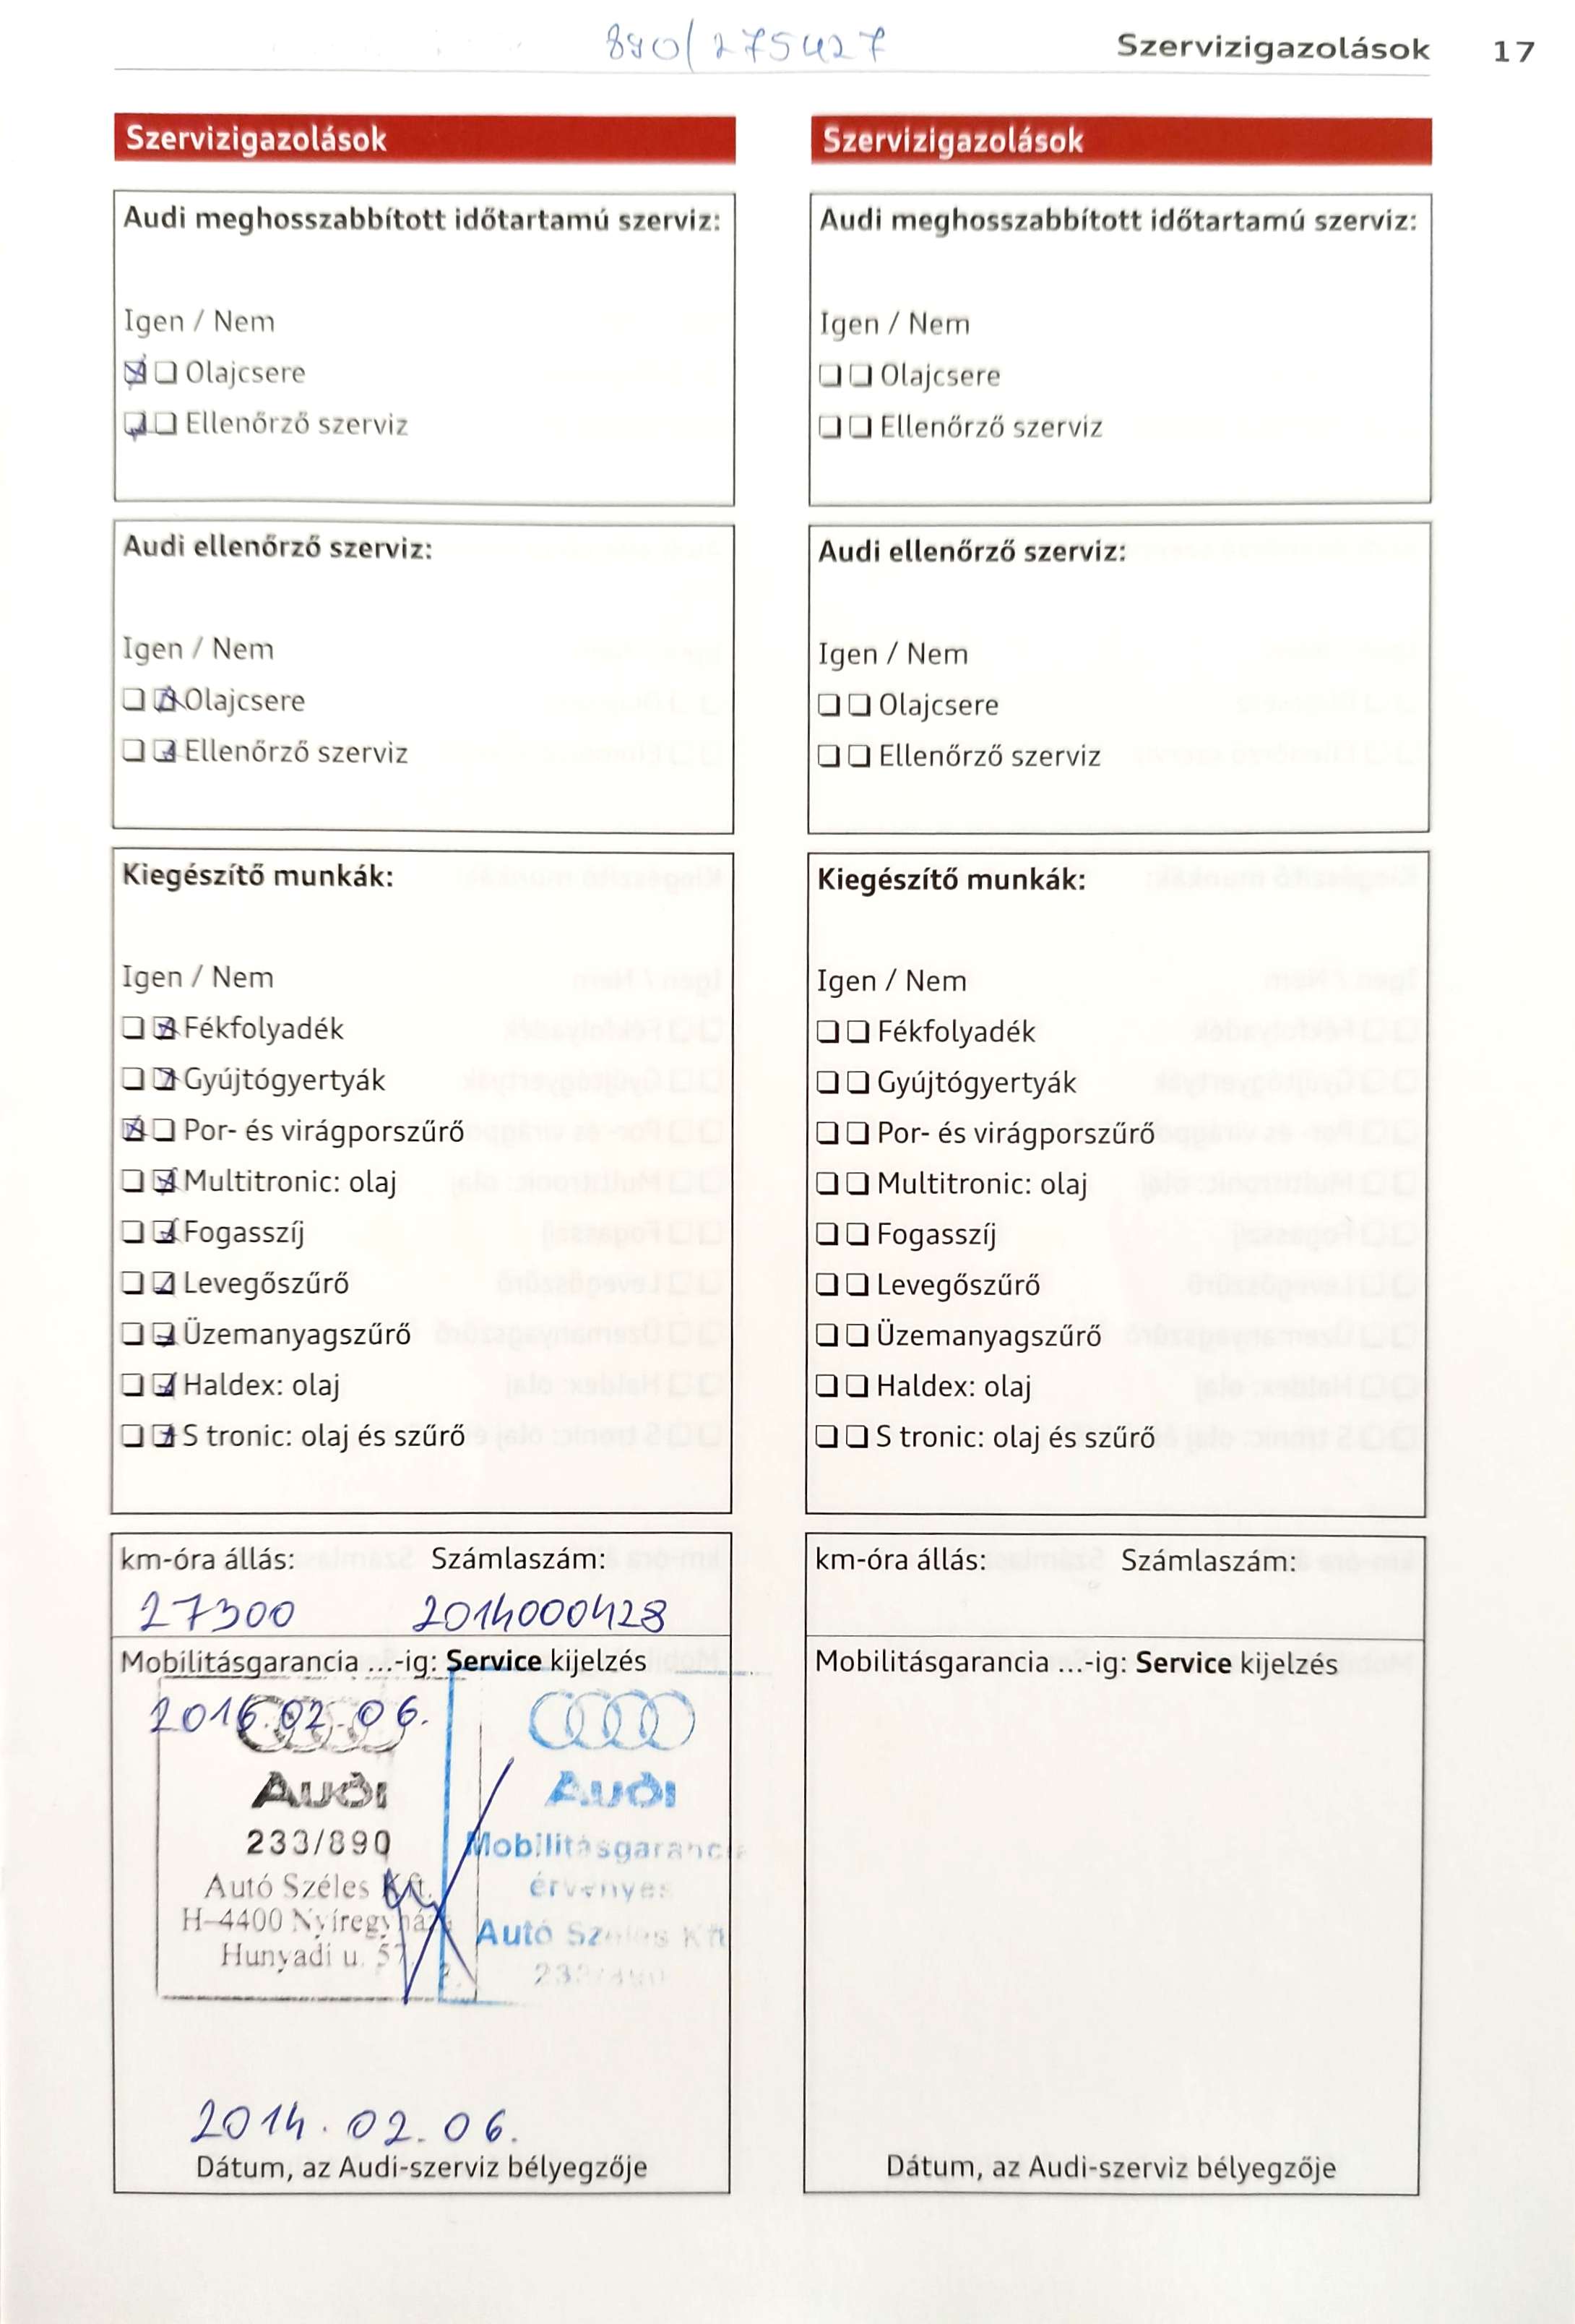 890/275427
Szervizigazolások 17
Szervizigazolások
Audi meghosszabbított időtartamú szerviz:
Igen / Nem
Olajcsere
Ellenőrző szerviz
Audi ellenőrző szerviz:
Igen / Nem
Olajcsere
Ellenőrző szerviz
Kiegészítő munkák:
Igen / Nem
Fékfolyadék
Gyújtógyertyák
Por- és virágporszűrő
Multitronic: olaj
Fogasszíj
Levegőszűrő
Üzemanyagszűrő
Haldex: olaj
S tronic: olaj és szűrő
km-óra állás: Számlaszám:
27300 2014000428
Mobilitásgarancia ...-ig: Service kijelzés
2016.02.06.
Audi
233/890
Autó Széles Kft.
H-4400 Nyíregyháza
Hunyadi u. 57
Audi
Mobilitásgarancia
érvényes
Autó Széles Kft
233/890
2014.02.06.
Dátum, az Audi-szerviz bélyegzője
Szervizigazolások
Audi meghosszabbított időtartamú szerviz:
Igen / Nem
Olajcsere
Ellenőrző szerviz
Audi ellenőrző szerviz:
Igen / Nem
Olajcsere
Ellenőrző szerviz
Kiegészítő munkák:
Igen / Nem
Fékfolyadék
Gyújtógyertyák
Por- és virágporszűrő
Multitronic: olaj
Fogasszíj
Levegőszűrő
Üzemanyagszűrő
Haldex: olaj
S tronic: olaj és szűrő
km-óra állás: Számlaszám:
Mobilitásgarancia ...-ig: Service kijelzés
Dátum, az Audi-szerviz bélyegzője